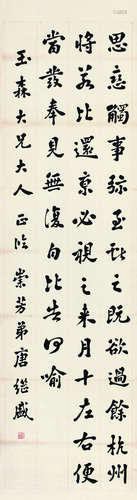 思戀觸事彌至之既欲過餘杭州
將若比還京必視之來月十左右便
當發奉見無復日比告何喻
玉森大兄大人正臨 崇芳弟唐繼盛